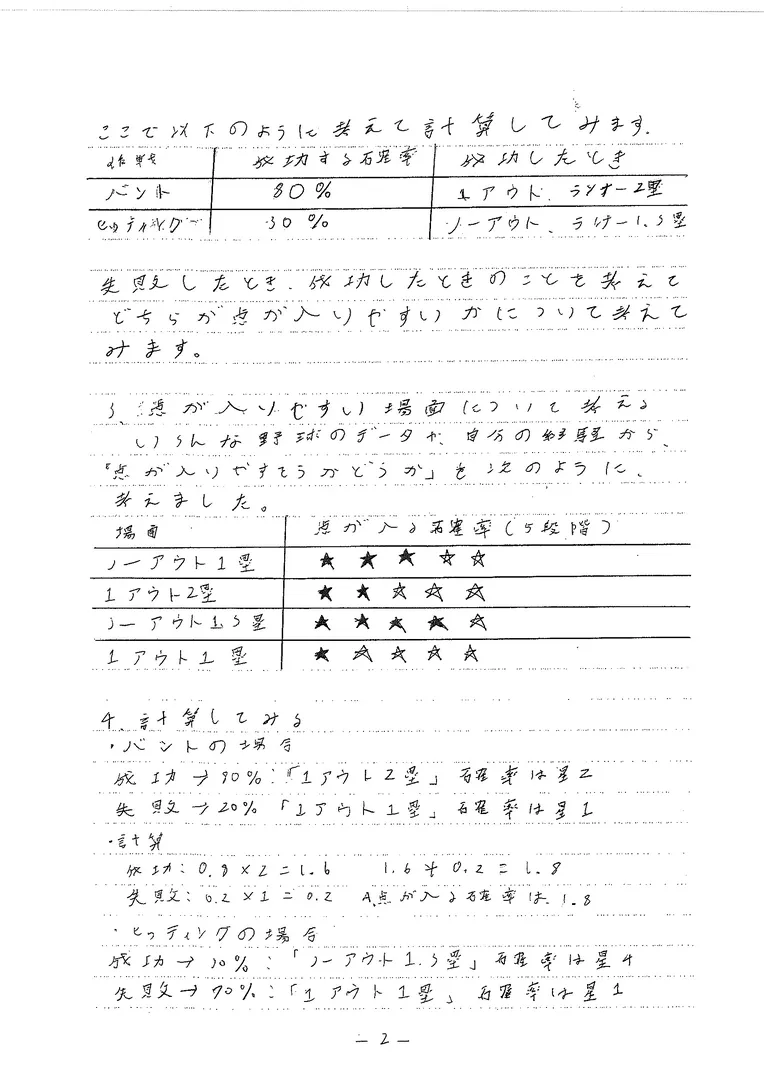 ここで以下のように考えて計算してみます.
作戦 成功する確率 成功したとき
バント 80% 1アウト、ランナー2塁
ヒッティング 30% ノーアウト、ランナー1.5塁
失敗したとき、成功したときのことを考えて
どちらが点が入りやすいかについて考えて
みます。
3、点が入りやすい場面について考える
いろんな野球のデータや、自分の経験から、
「点が入りやすそうかどうか」を次のように、
考えました。
場面 点が入る確率(5段階)
ノーアウト1塁 ★★★☆☆
1アウト2塁 ★★☆☆☆
ノーアウト1.5塁 ★★★★☆
1アウト1塁 ★☆☆☆☆
4、計算してみる
・バントの場合
成功→80%:「1アウト2塁」確率は星2
失敗→20%「1アウト1塁」確率は星1
・計算
成功:0.8×2=1.6 1.6+0.2=1.8
失敗:0.2×1=0.2 A.点が入る確率は.1.8
・ヒッティングの場合
成功→30%:「ノーアウト1.5塁」確率は星4
失敗→70%:「1アウト1塁」確率は星1
-2-